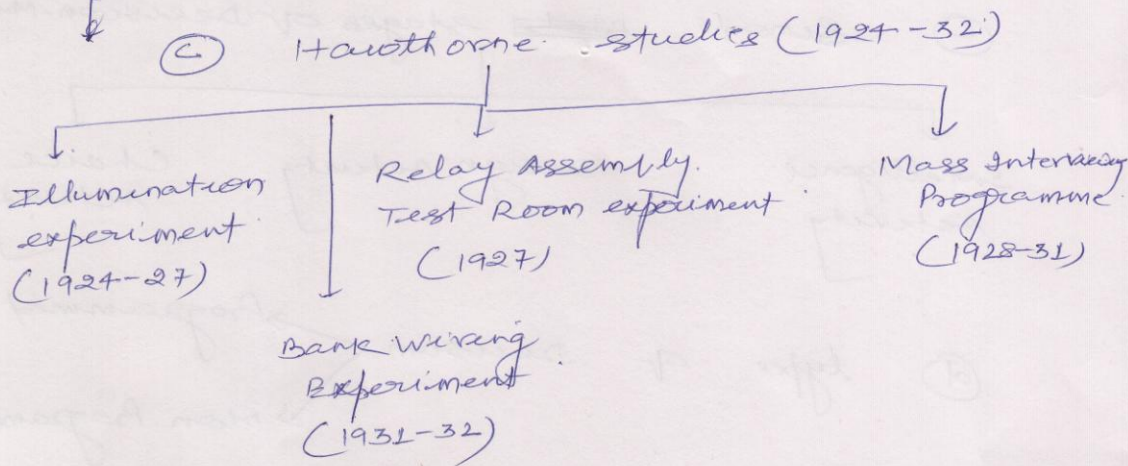 C Hawthorne studies (1924-32)
Illumination
experiment
(1924-27)
Relay Assembly.
Test Room experiment
(1927)
Mass Interviewing
Programme
(1928-31)
Bank Wiring
Experiment
(1931-32)